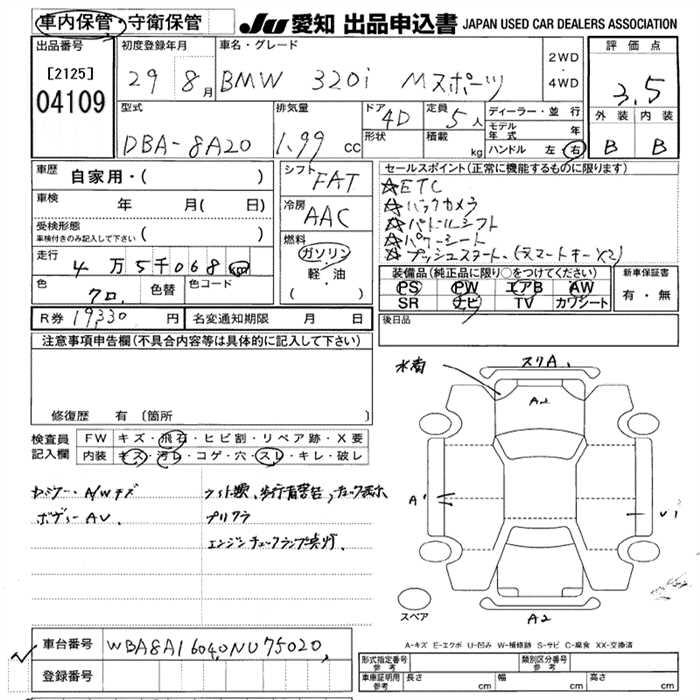 車内保管・守衛保管 JU 愛知 出品申込書 JAPAN USED CAR DEALERS ASSOCIATION
出品番号 初度登録年月 車名・グレード 2WD・4WD 評価点
[2125] 04109 29 8月 BMW 320i Mスポーツ 3.5
型式 排気量 ドア 4D 定員 5人 ディーラー・並行 外装 内装
DBA-8A20 1.99 cc 形状 積載 kg モデル年式 年 B B
ハンドル 左 右
車歴 自家用・( ) シフト FAT セールスポイント(正常に機能するものに限ります)
車検 年 月(日) 冷房 AAC ☆ETC
☆バックカメラ
受検形態 ☆パドルシフト
車検付きのみ記入して下さい ( ) 燃料 ☆パワーシート
走行 4万5千068km ガソリン 軽・油 ( ) ☆プッシュスタート、(スマートキーX2)
色 クロ、 色替 色コード 装備品(純正品に限り○をつけてください) 新車保証書
PS PW エアB AW 有・無
SR ナビ TV カワシート
R券 19330 円 名変通知期限 月 日 後日品
注意事項申告欄(不具合内容等は具体的に記入して下さい)
スリA1
A2
修復歴 有 [箇所
検査員記入欄 FW キズ・飛石・ヒビ割・リペア跡・X要
内装 キズ・汚レ・コゲ・穴・スレ・キレ・破レ
A1 U1
プリクラ
エンジンチェックランプ点灯、
スペア A2
車台番号 WBA8A16040NU75020,
A-キズ E-エクボ U-凹み W-補修跡 S-サビ C-腐食 XX-交換済
登録番号
形式指定番号 参考 類別区分番号 参考
車庫証明用 参考 長さ cm 幅 cm 高さ cm